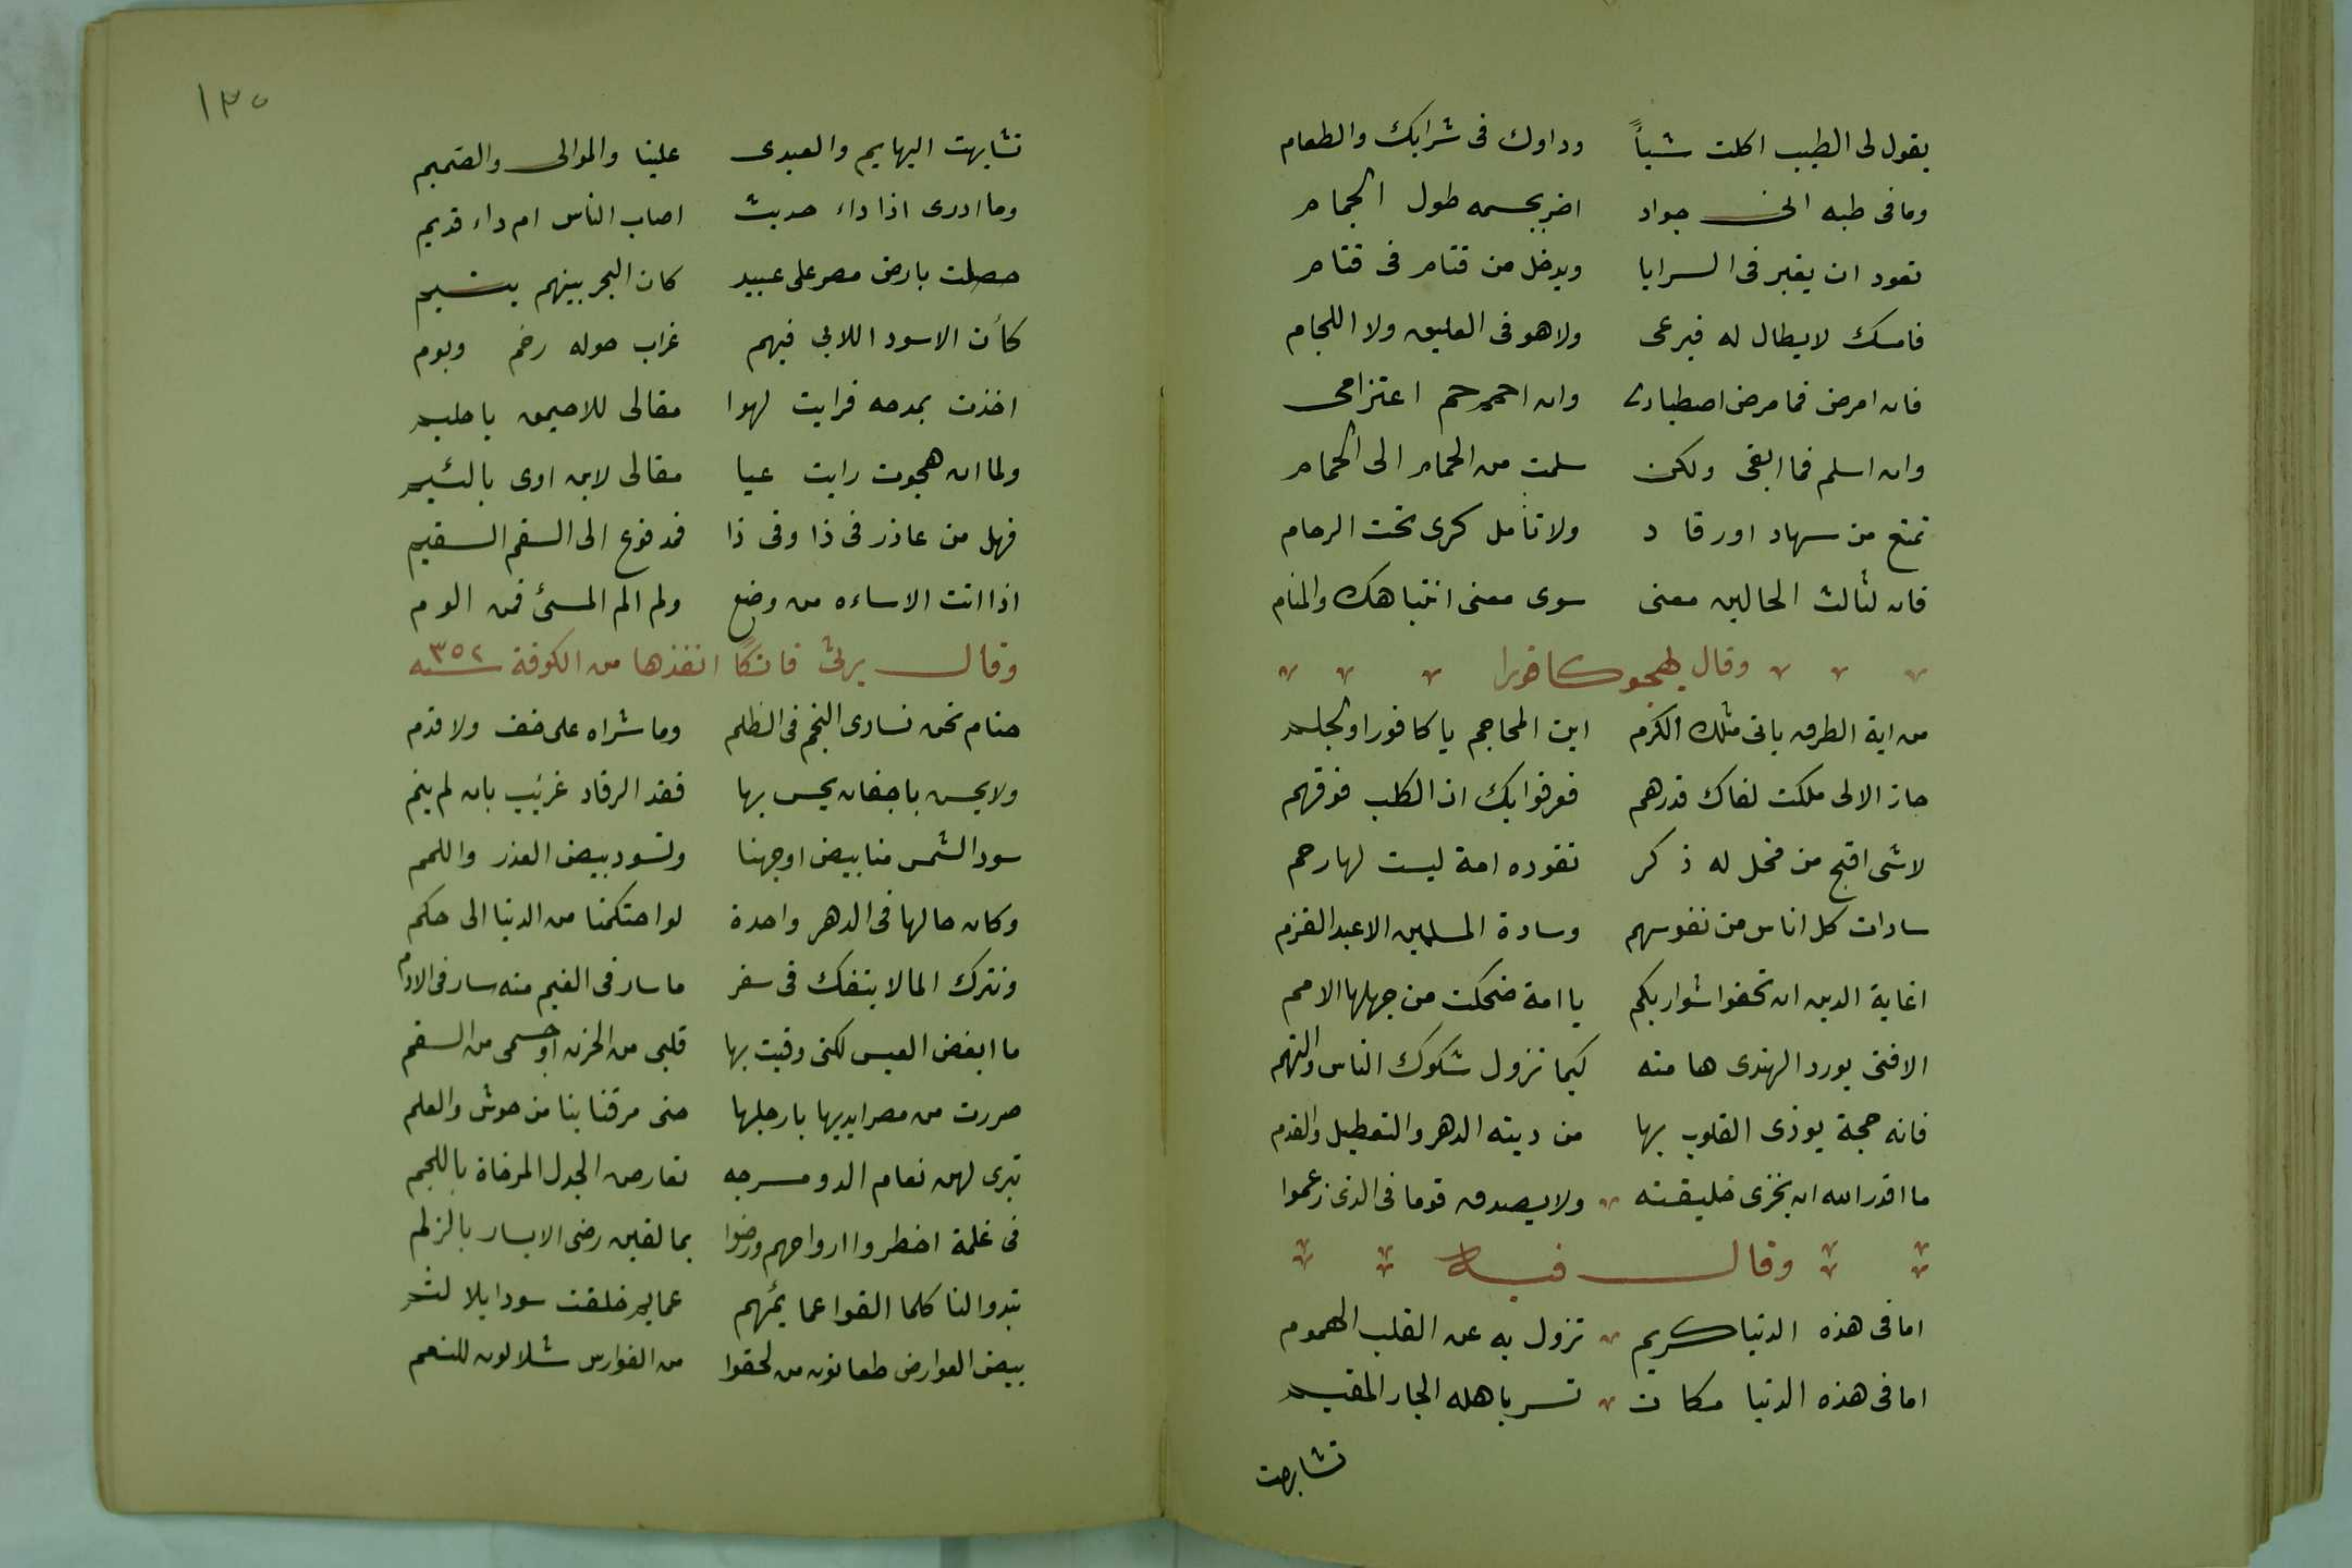 يقول لى الطبيب اكلت شيأً وداوك فى شرابك والطعام
وما فى طبه انى جواد اضر بجسمه طول الجمام
تعود ان يغبر فى السرايا ويدخل من قتام فى قتام
فامسك لا يطال له فيرعى ولا هو فى العليق ولا اللجام
فان امرض فما مرض اصطبارى وان احمم حم اعتزامى
وان اسلم فما ابقى ولكن سلمت من الحمام الى الحمام
تمتع من سهاد او رقاد ولا تأمل كرى تحت الرجام
فان لثالث الحالين معنى سوى معنى انتباهك والمنام
وقال يهجو كافورا
من اية الطرق ياتى مثلك الكرم اين المحاجم يا كافور اوالجلم
جاز الالى ملكت لفاك قدرهم فعرفوا بك ان الكلب فوقهم
لا شى اقبح من فحل له ذكر تقوده امة ليست لها رحم
سادات كل اناس من نفوسهم وسادة المسلمين الاعبد القزم
اغاية الدين ان تحفوا شواربكم يا امة ضحكت من جهلها الامم
الا فتى يورد الهندى هامته كيما تزول شكوك الناس والتهم
فانه حجة يوذى القلوب بها من دينه الدهر والتعطيل والقدم
ما اقدر الله ان يخزى خليقته ولا يصدق قوما فى الذى زعموا
وقال فيه
اما فى هذه الدنيا كريم تزول به عن القلب الهموم
اما فى هذه الدنيا مكان تسر باهله الجار المقيم
تشابهت
١٣٠
تشابهت البهايم والعبدى علينا والموالى والصميم
وما ادرى اذا داء حديث اصاب الناس ام داء قديم
حصلت بارض مصر على عبيد كان الحر بينهم يتيم
كأن الاسود اللابى فيهم غراب حوله رخم وبوم
اخذت بمدحه فرايت لهوا مقالى للاحيمق يا حليم
ولما ان هجوت رايت عيا مقالى لابن اوى يا لئيم
فهل من عاذر فى ذا وفى ذا فمدفوع الى السقم السقيم
اذا اتت الاساءه من وضع ولم الم المسئ فمن الوم
وقال يرثى فاتكًا انفذها من الكوفة سنه ٣٥٢
حتام نحن نسارى النجم فى الظلم وما سراه على خف ولا قدم
ولا يحس باجفان يحس بها فقد الرقاد غريب بات لم ينم
سود الشمس منا بيض اوجهنا وتسود بيض العذر واللمم
وكان حالها فى الدهر واحدة لو احتكمنا من الدنيا الى حكم
ونترك الما لا ينفك فى سفر ما سار فى الغيم منه سار فى الادم
ما ابغض العيس لكنى وقيت بها قلبى من الحزن او جسمى من السقم
صررت من مصر ايديها بارجلها حتى مرقنا بنا من جوش والعلم
تبرى لهن نعام الدو مسرجه تعارض الجدل المرخاة باللجم
فى غلمة اخطروا ارواحهم ورضوا بما لقين رضى الايسار بالزلم
تبدوا لنا كلما القوا عمائمهم عمايم خلقت سودا بلا لثم
بيض العوارض طعانون من لحقوا من الفوارس شلالون للنعم